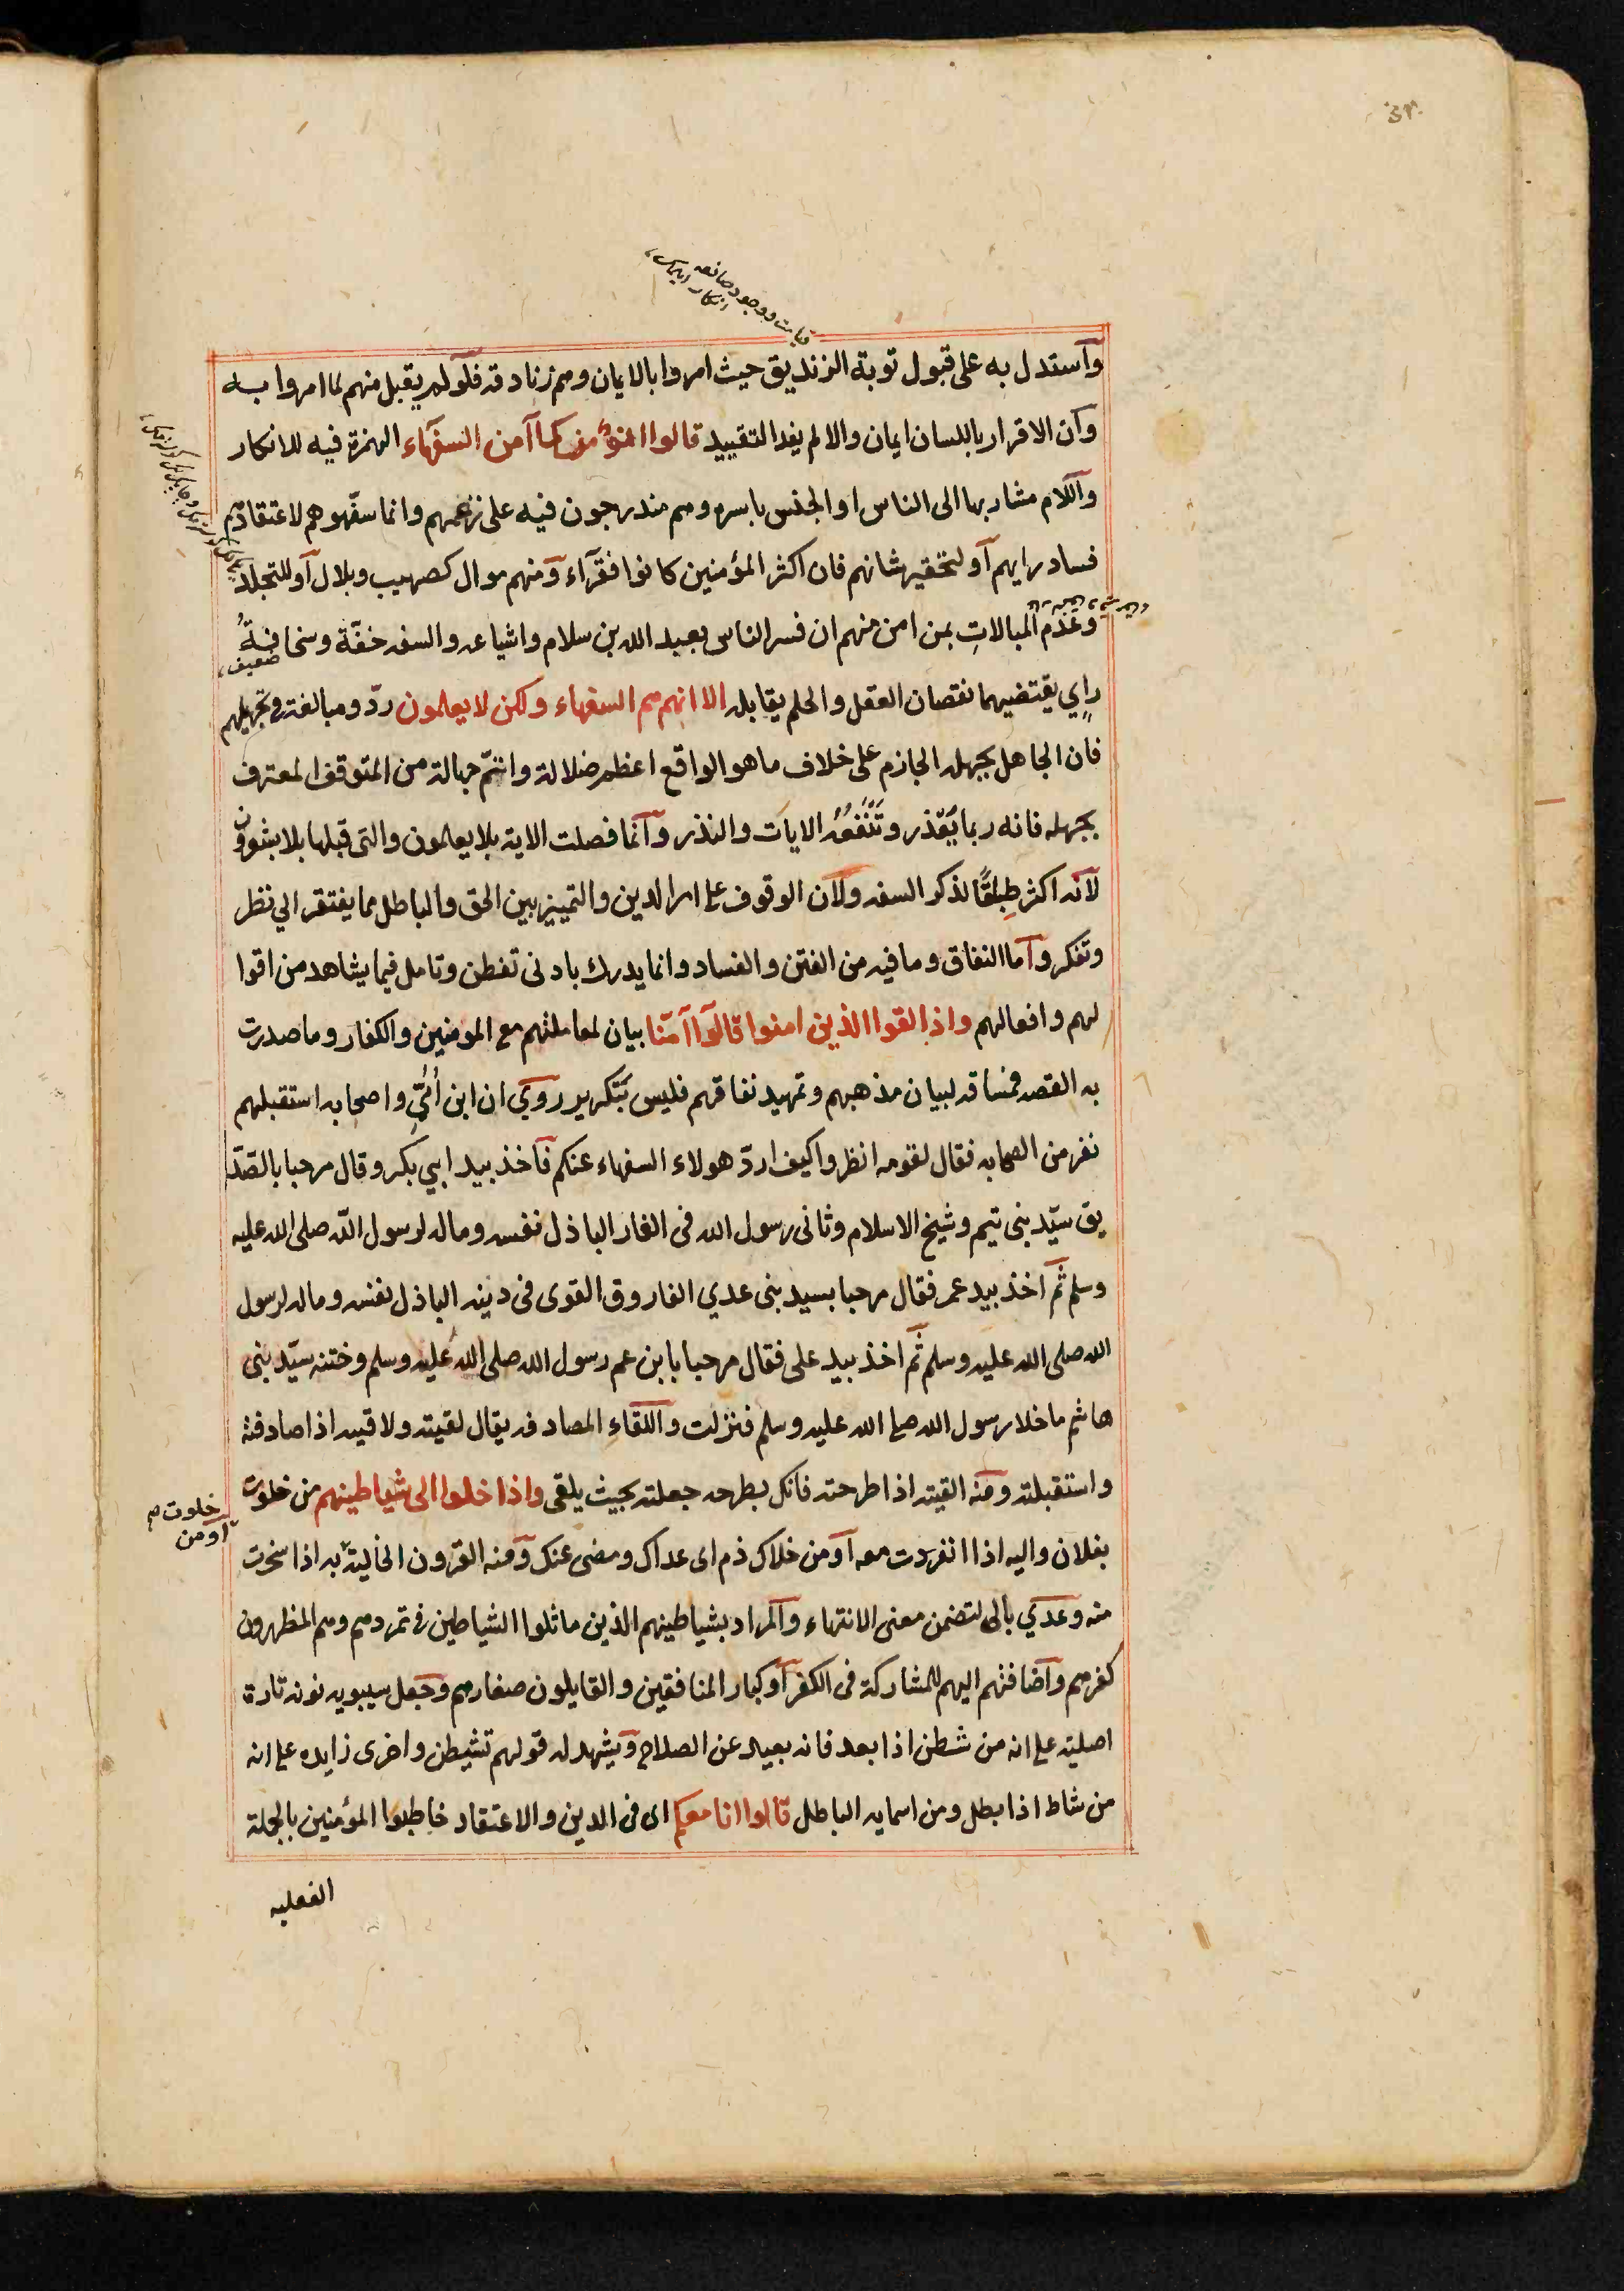 وآستدل به على قبول توبة الزنديق حيث امروا بالايمان وهم زنادقه فلو لم يقبل منهم لما امروا به
وآن الاقرار باللسان ايمان والا لم يفد التقييد قالوا انؤمن كما آمن السفهاء الهمزة فيه للانكار
وآللام مشار بها الى الناس او الجنس باسره وهم مندرجون فيه على زعمهم وانما سفّهوهم لاعتقادهم
فساد رايهم آو لتحقير شانهم فان اكثر المؤمنين كانوا فقرآء ومنهم موال كصهيب وبلال آو للتجلد
وعَدَم المبالاتِ بمن امن منهم ان فسر الناس بعبد الله بن سلام واشياعه والسفه خفّة وسخافةُ
ضعيف
رايٍ يقتضيهما نقصان العقل والحلم يقابله الا انهم هم السفهاء ولكن لا يعلمون ردّ ومبالغة في تجهيلهم
فان الجاهل بجهله الجازم على خلاف ما هو الواقع اعظم ضلالة واتمّ جهالة من المتوقف المعترف
بجهله فانه ربما يُعْذر وتَنْفَعُهُ الايات والنذر وآنما فصلت الاية بلا يعلمون والتى قبلها بلا يشعرون
لآنه اكثر طِباقًا لذكر السفه ولآن الوقوف على امر الدين والتمييز بين الحق والباطل مما يفتقر الي نظر
وتفكر وآما النفاق وما فيه من الفتن والفساد وانما يدرك بادنى تفطن وتامل فيما يشاهد من اقوا
لهم وافعالهم واذا لقوا الذين امنوا قالوآ آمنّا بيان لمعاملتهم مع المومنين والكفار وما صدرت
به القصه فمساقه لبيان مذهبهم وتمهيد نفاقهم فليس بتكرير روي ان ابن اُبيّ واصحابه استقبلهم
نفر من الصحابه فقال لقومه انظروا كيف اردّ هولاء السفهاء عنكم فآخذ بيد ابي بكر وقال مرحبا بالصّدّ
يق سيّد بنى تيم وشيخ الاسلام وثانى رسول الله فى الغار الباذل نفسه وماله لرسول اللّه صلى الله عليه
وسلم ثم آخذ بيد عمر فقال مرحبا بسيد بنى عدي الفاروق القوى فى دينه الباذل نفسه وماله لرسول
الله صلى الله عليه وسلم ثم اخذ بيد على فقال مرحبا بابن عم رسول الله صلى الله عليه وسلم وختنه سيّد بنى
هاشم ما خلا رسول الله صلى الله عليه وسلم فنزلت وآللقاءِ المصادفه يقال لقيته ولاقيته اذا صادفته
واستقبلته ومنه القيته اذا طرحته فانك بطرحه جعلته بحيث يلقى واذا خلوا الى شياطينهم من خلوت
خلوت
آو من
بفلان واليه اذا انفردت معه آو من خلاك ذم اى عداك ومضى عنك ومنه القرون الخالية به اذا سخرت
منه وعدي بالى لتضمن معنى الانتهاء وآلمراد بشياطينهم الذين ماثلوا الشياطين فى تمردهم وهم المظهرون
كفرهم وآضافتهم اليهم للمشاركة فى الكفر آو كبار المنافقين والقايلون صغارهم وجعل سيبويه نونه تارة
اصلية على انه من شطن اذا بعد فانه بعيد عن الصلاح ويشهد له قولهم تشيطن واخرى زايده على انه
من شاط اذا بطل ومن اسمايه الباطل قالوا انا معكم اى فى الدين والاعتقاد خاطبوا المؤمنين بالجملة
الفعليه